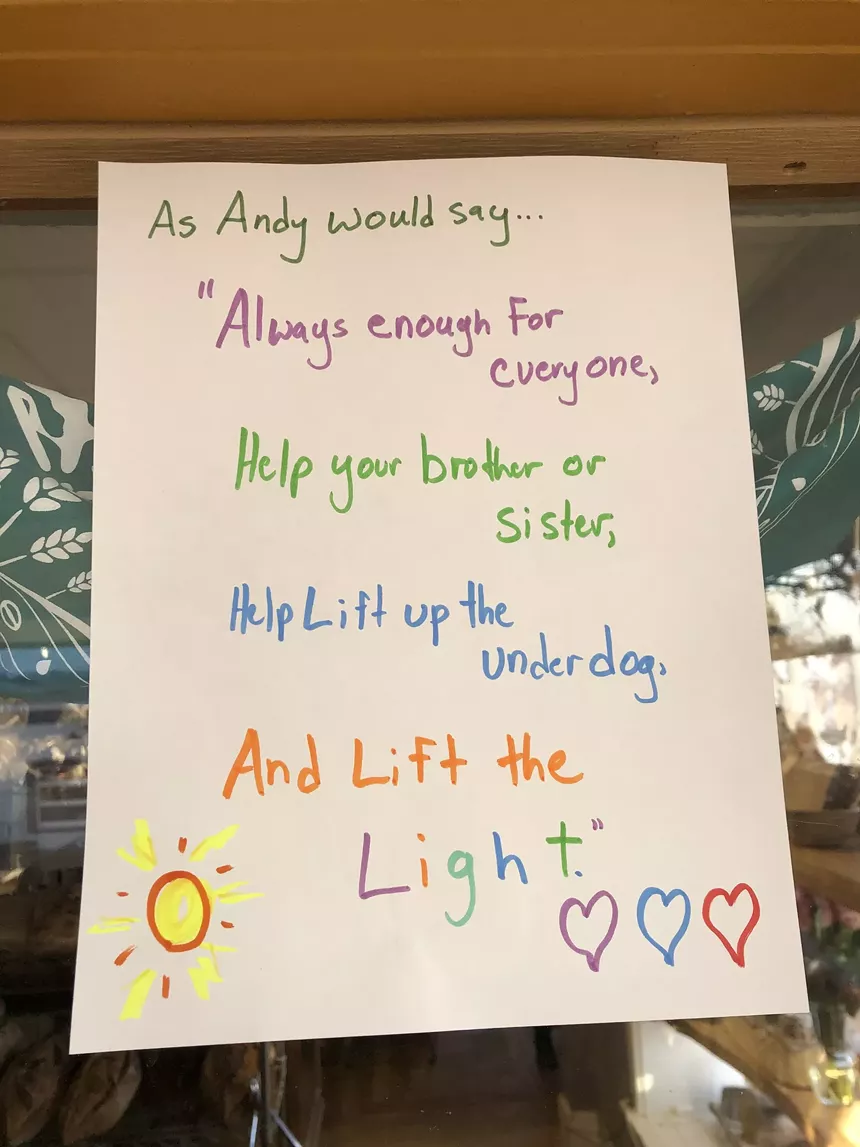 As Andy would say...
"Always enough For
everyone,
Help your brother or
sister,
Help Lift up the
underdog,
And Lift the
Light."